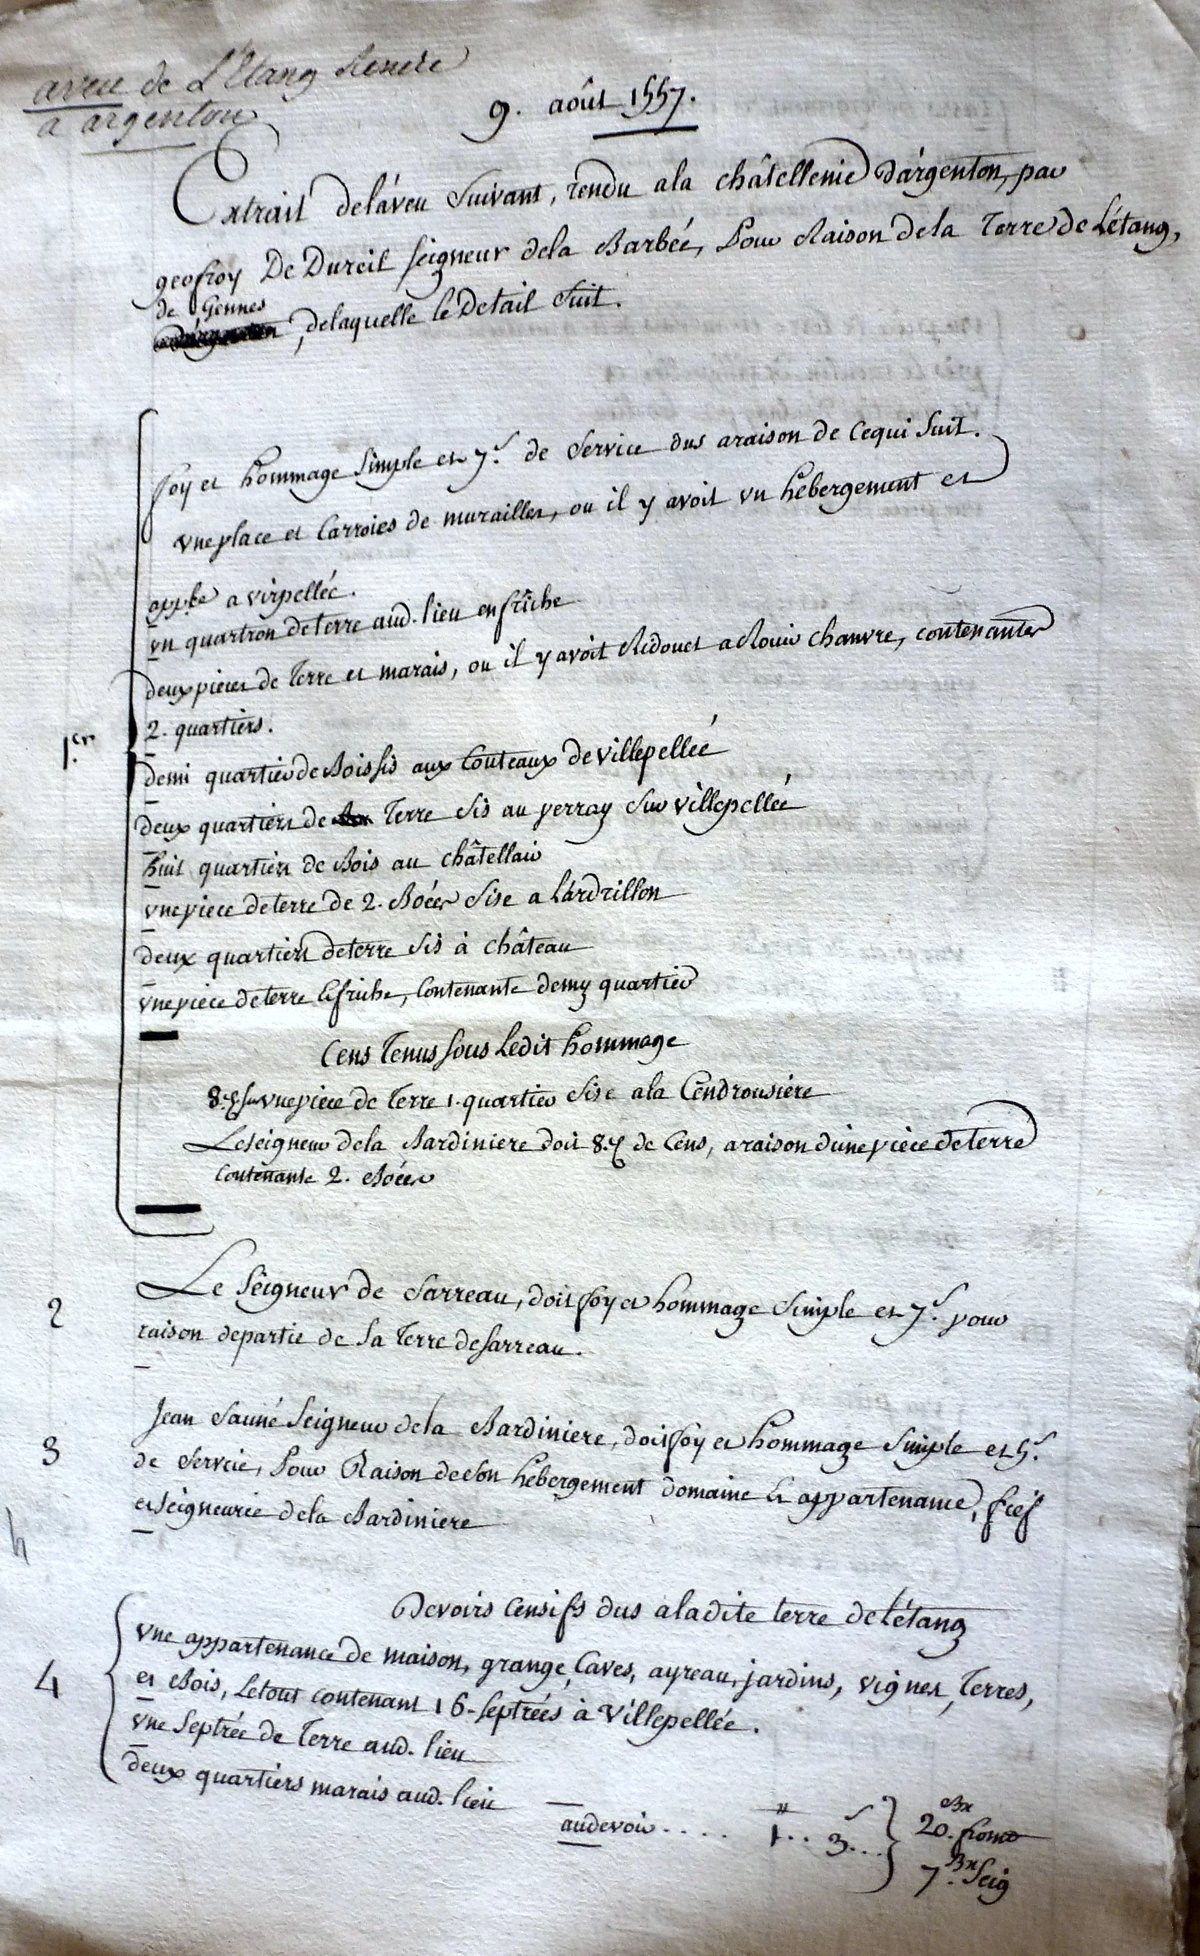 aveu de L'Etang Rendu
a argenton
9. août 1557.
Extrait del'aveu Suivant, rendu ala châtellenie D'argenton, par
geofroy De Dureil Seigneur dela Barbée, Pour Raison dela Terre de L'étang,
de Gennes
, delaquelle le Detail Suit.
foy et hommage Simple et 7.s de Service dus araison de cequi Suit.
vne place et Carroies de murailles, ou il y avoit vn hébergement et
appelé a virpellée.
vn quartron deterre aud. lieu enfriche
deux pieces de Terre et marais, ou il y avoit Ridouet a Rouir chanvre, contenantes
2. quartiers.
1.er
demi quartier de Bois sis aux Couteaux de villepellée
deux quartiers de Terre Sis au perray Sur villepellée
huit quartiers de Bois au châtellair
vne piece deterre de 2. Boées Sise a L'ardrillon
deux quartiers deterre Sis à château
vne piece deterre & friche, Contenante demy quartier
Cens Tenus Sous Ledit hommage
8.d sur vne piece de Terre 1. quartier Sise ala Cendrousiere
Le Seigneur dela Jardiniere doit 8.d de Cens, araison d'une piéce deterre
Contenante 2. Boées
2
Le Seigneur de Sarreau, doit foy et hommage Simple et 7.s pour
raison departie de Sa Terre de Sarreau.
3
Jean Sauné Seigneur dela Jardiniere, doit foy et hommage Simple et 5.s
de Service, Pour Raison deson hébergement domaine & appartenance, fief
et Seigneurie dela Jardiniere
4
Devoirs Censifs dus aladite terre de L'étang
vne appartenance de maison, grange, Caves, ayreau, jardins, vignes, Terres,
et Bois, Letout contenant 16. Septrées à Villepellée.
vne Septrée de Terre aud. lieu
deux quartiers marais aud. lieu
au devoir . . . . 1.. 3.s .. } 20. Bx from
7. Bx Seig